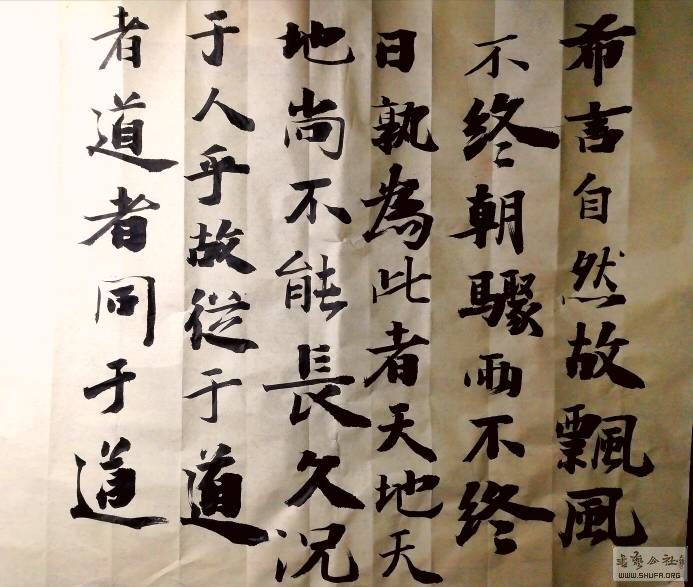 希言自然故飄風
不終朝驟雨不終
日孰為此者天地天
地尚不能長久況
于人乎故從于道
者道者同于道
WWW.SHUFA.ORG